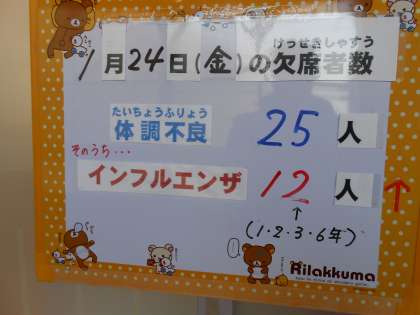 けっせきしゃすう
1月24日(金)の欠席者数
たいちょうふりょう
体調不良 25人
そのうち・・・
インフルエンザ 12人 ↑
↑
(1・2・3・6年)
Rilakkuma